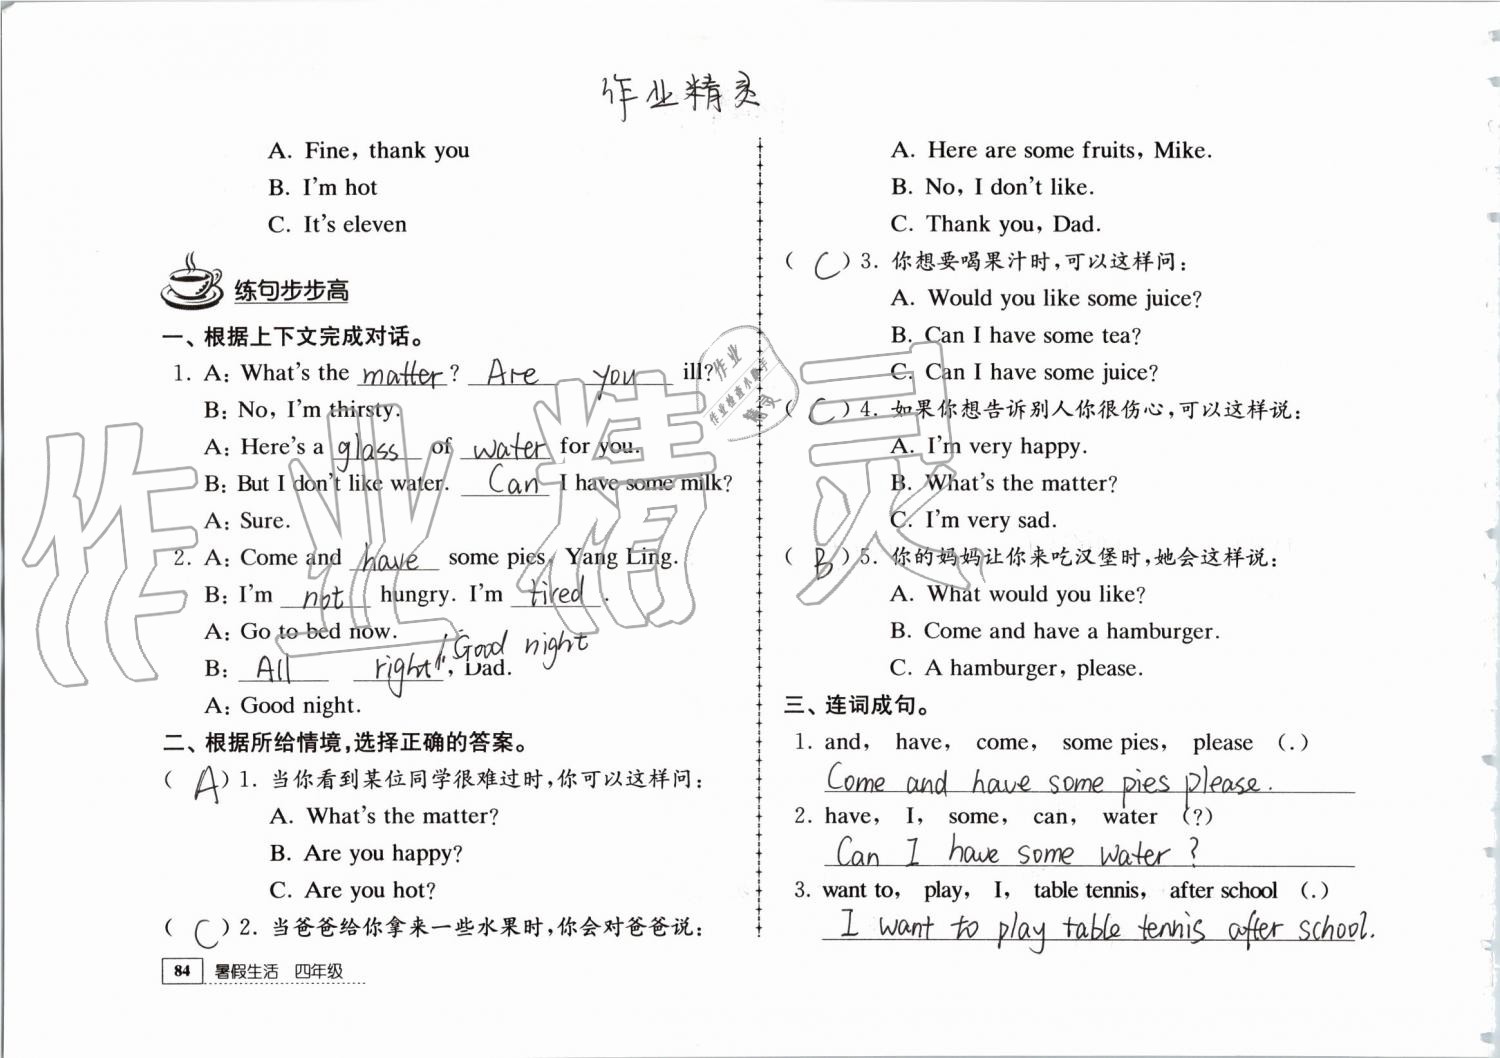 作业精灵
A. Fine, thank you
B. I'm hot
C. It's eleven
练句步步高
一、根据上下文完成对话。
1. A: What's the matter? Are you ill?
B: No, I'm thirsty.
A: Here's a glass of water for you.
B: But I don't like water. Can I have some milk?
A: Sure.
2. A: Come and have some pies, Yang Ling.
B: I'm not hungry. I'm tired.
A: Go to bed now.
B: All right! Good night, Dad.
A: Good night.
二、根据所给情境,选择正确的答案。
( A )1. 当你看到某位同学很难过时,你可以这样问:
A. What's the matter?
B. Are you happy?
C. Are you hot?
( C )2. 当爸爸给你拿来一些水果时,你会对爸爸说:
84 暑假生活 四年级
A. Here are some fruits, Mike.
B. No, I don't like.
C. Thank you, Dad.
( C )3. 你想要喝果汁时,可以这样问:
A. Would you like some juice?
B. Can I have some tea?
C. Can I have some juice?
( C )4. 如果你想告诉别人你很伤心,可以这样说:
A. I'm very happy.
B. What's the matter?
C. I'm very sad.
( B )5. 你的妈妈让你来吃汉堡时,她会这样说:
A. What would you like?
B. Come and have a hamburger.
C. A hamburger, please.
三、连词成句。
1. and, have, come, some pies, please (.)
Come and have some pies please.
2. have, I, some, can, water (?)
Can I have some water?
3. want to, play, I, table tennis, after school (.)
I want to play table tennis after school.
作业精灵
作业
作业检查小助手
精灵